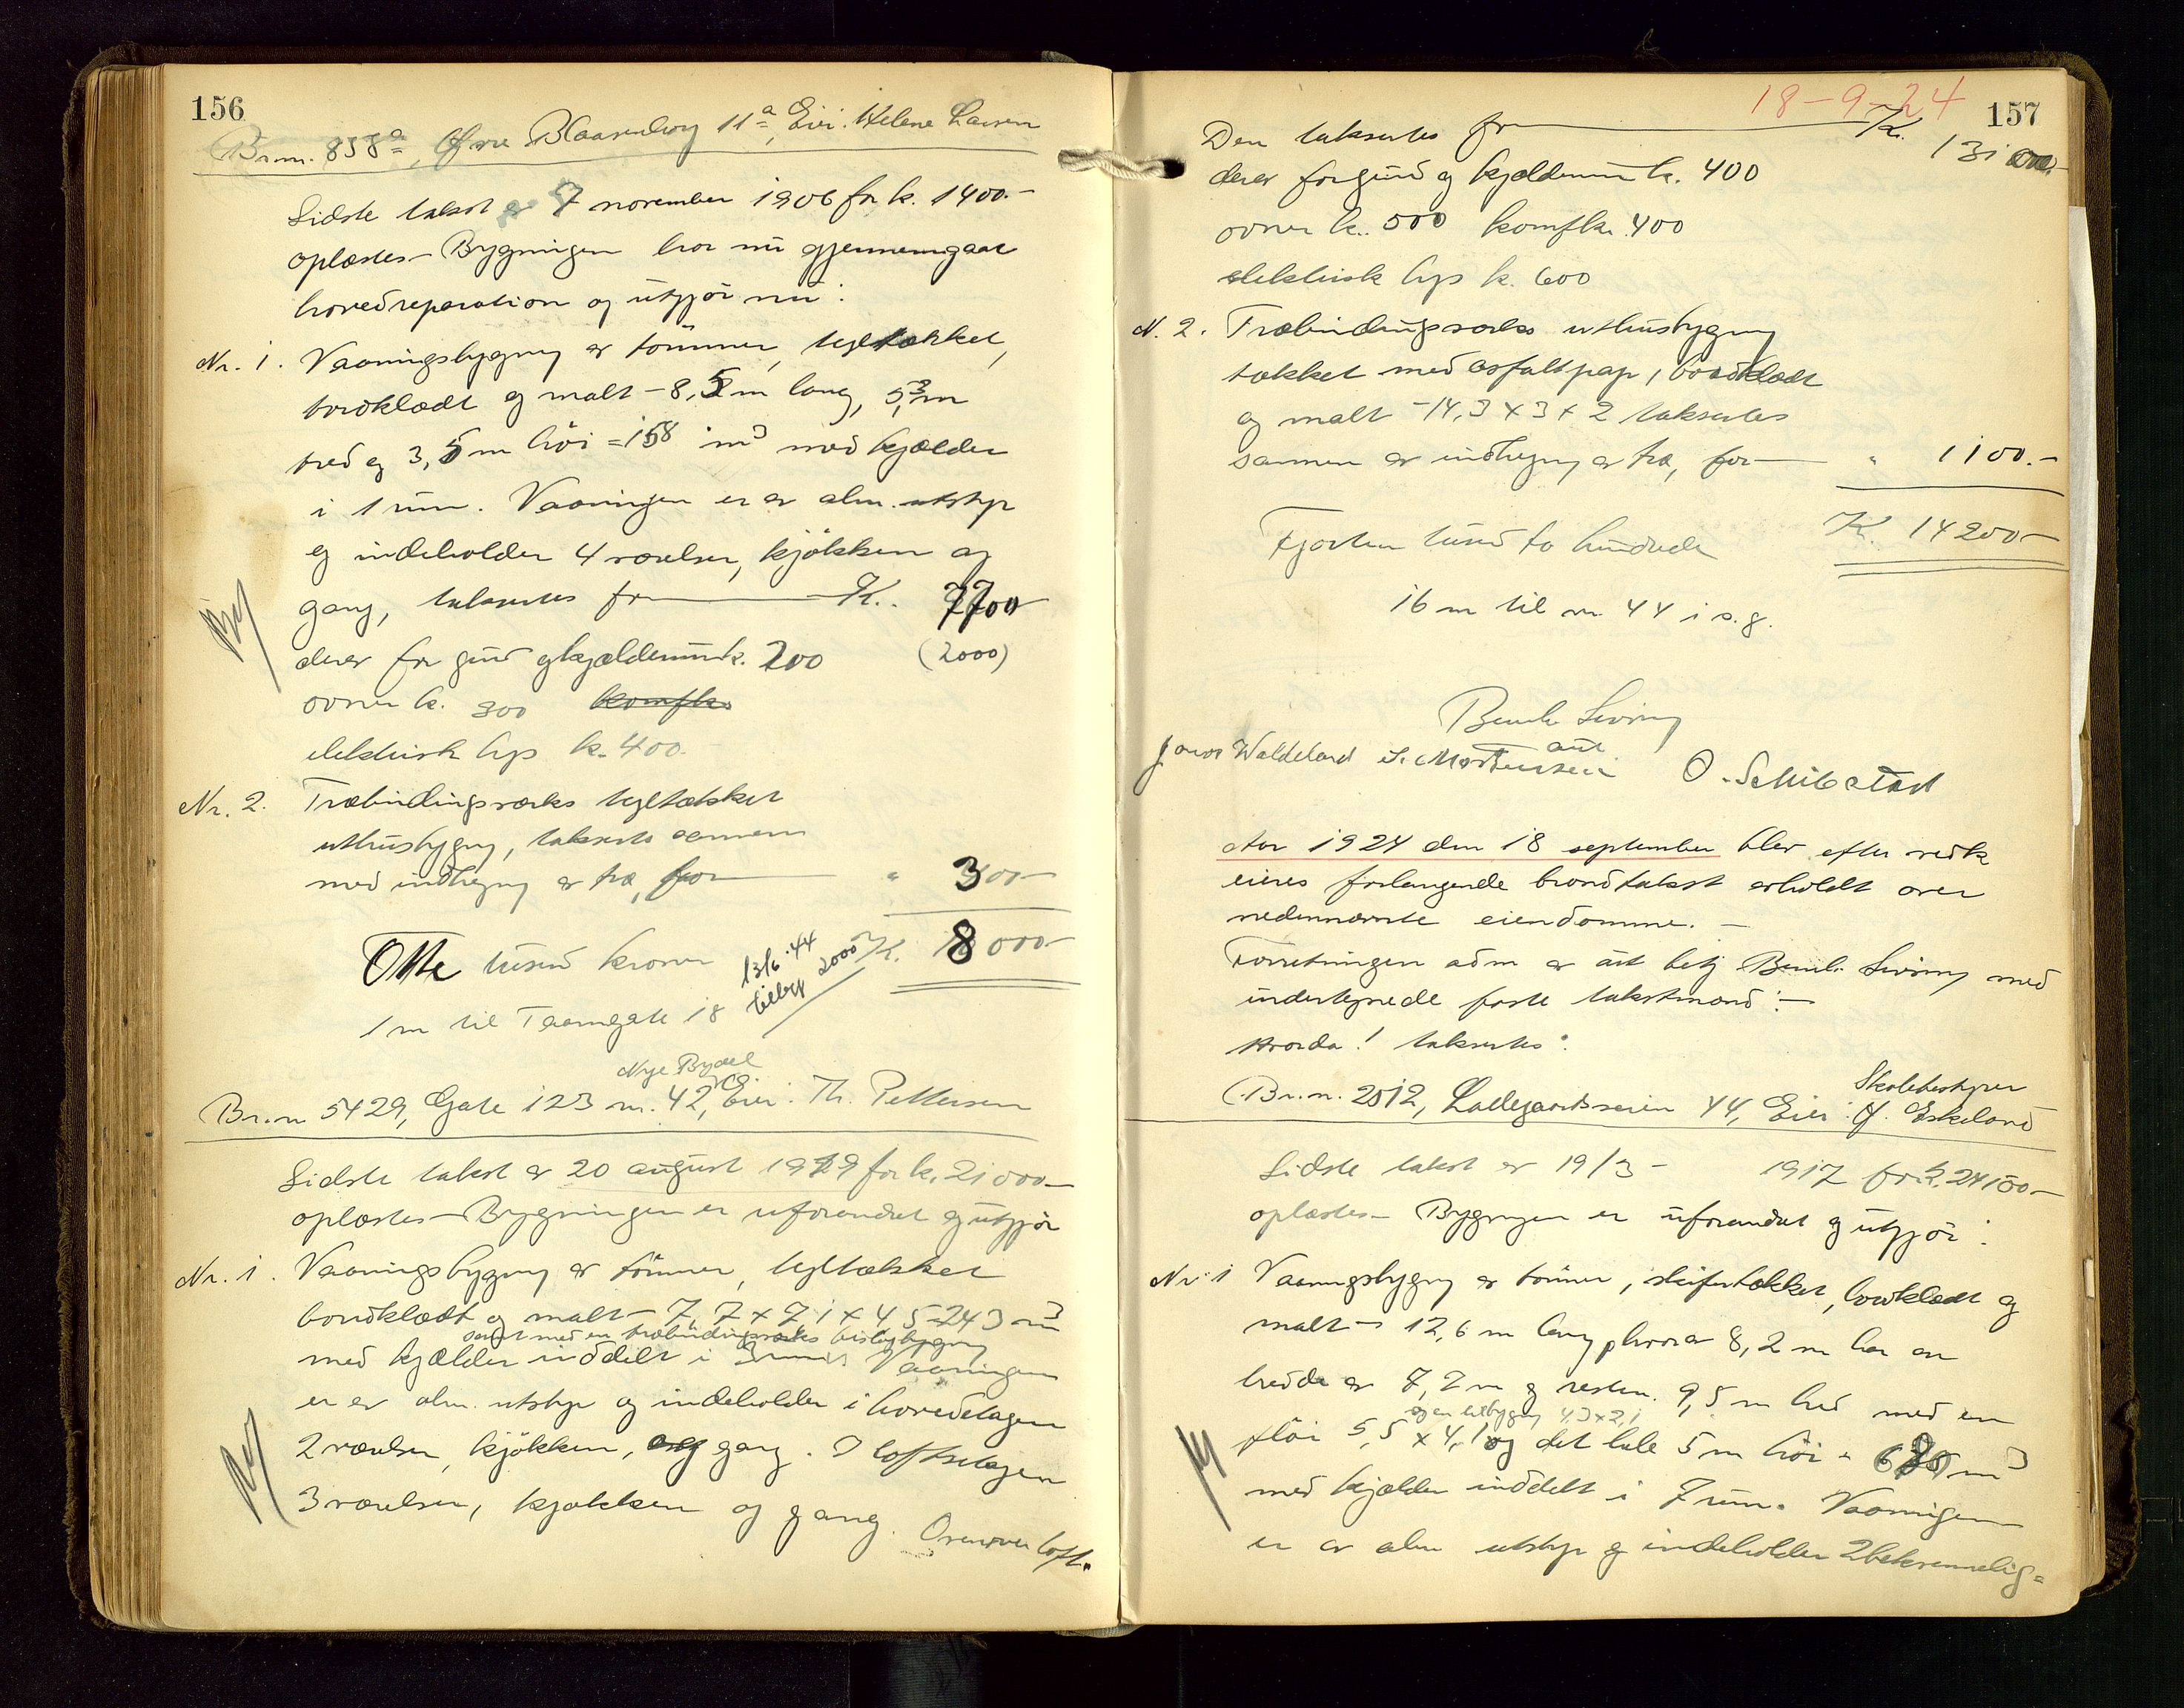 156
Br.nr. 858a, Øvre Blaasenborg 11a, Eier: Helene Larsen
Sidste takst av 7 november 1906 for k. 1400.-
oplæstes - Bygningen har nu gjennemgaat
hovedreparation og utgjör nu:
Nr. 1. Vaaningsbygning av tömmer, tegltækket,
bordklædt og malt - 8,5 m lang, 5,3 m
bred og 3,5 m höi = 158 m3 med kjælder
i 1 rum. Vaaningen er av alm. utstyr
og indeholder 4 værelser, kjökken og
gang, takseres for K. 7700
derav for grund og kjældermur k. 200 (2000)
ovner k. 300 komfk.
elektrisk lys k. 400.
Nr. 2. Træbindingsverks tegltækket
uthusbygning, takseres sammen
med indhegning av træ, for " 300.-
Otte tusind kroner K. 8000.-
13/6.44
tilbyg 2000
1 m til Taarngate 18
Nye Bydel
Br.nr. 5429, Gate 123 nr. 42, Eier: Th. Pettersen
Sidste takst av 20 august 1919 for k. 21000.-
oplæstes - Bygningen er uforandret og utgjör
Nr. 1. Vaaningsbygning av tömmer, tegltækket
bordklædt og malt - 7,7 x 7,1 x 4,5 = 243 m3
samt med en træbindingsverks bislagbygning
med kjælder inddelt i 3 rum. Vaaningen
er av alm. utstyr og indeholder i hovedetagen
2 værelser, kjökken, og gang. I loftsetagen
3 værelser, kjøkken og gang. Ovenover loft.
18-9-24
157
Den takseres for K. 13100.-
derav for grund og kjældermur k. 400
ovner k. 500 komfk. 400
elektrisk lys k. 600
N. 2. Træbindingsverks uthusbygning
tækket med asfaltpap, bordklædt
og malt - 14,3 x 3 x 2 takseres
sammen av indhegning av træ, for " 1100.-
Fjorten tusind to hundrede K. 14200.-
16 m til nr 44 i s.g.
Bernh. Sviny
aut
Jonas Waldeland S. Mortensen O. Schibstad
Aar 1924 den 18 september blev efter vedk
eieres forlangende brandtakst avholdt over
nedennævnte eiendomme. -
Forretningen adm. av aut betj Bernh. Sviny med
undertegnede faste takstmænd: -
Hvorda! takseres:
Skolebestyrer
Br.n. 2512, Ladegaardsveien 44, Eier: J. Eskeland
Sidste takst av 19/3 - 1917 for k. 24100.-
oplæstes - Bygningen er uforandret og utgjör:
Nr. 1 Vaaningsbygning av tömmer, skifertækket, bordklædt og
malt - 12,6 m lang, hvorav 8,2 m har en
bredde av 7,2 m og resten 9,5 m bred med en
og en tilbygning 4,3 x 2,1
flöi 5,5 x 4,1 og det hele 5 m höi = m3
med kjælder inddelt i 7 rum. Vaaningen
er av alm utstyr og indeholder 2 bekvemmelig=